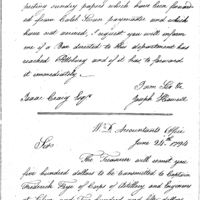 pecting sundry papers which have been forward-
ed from Caleb Swan paymaster and which
have not arrived, I request you will inform
me if a Box directed to this department has
reached Pittsburg and if it has to forward
it immediately.
I am Sir &c
Isaac Craig Esqr. Joseph Howell
Wr. Dt. Accountants Office
June 24th 1794
Sir
The Treasurer will remit you
five hundred dollars to be transmitted to Captain
Frederick Frye of Corps of Artillery and Engineers
at